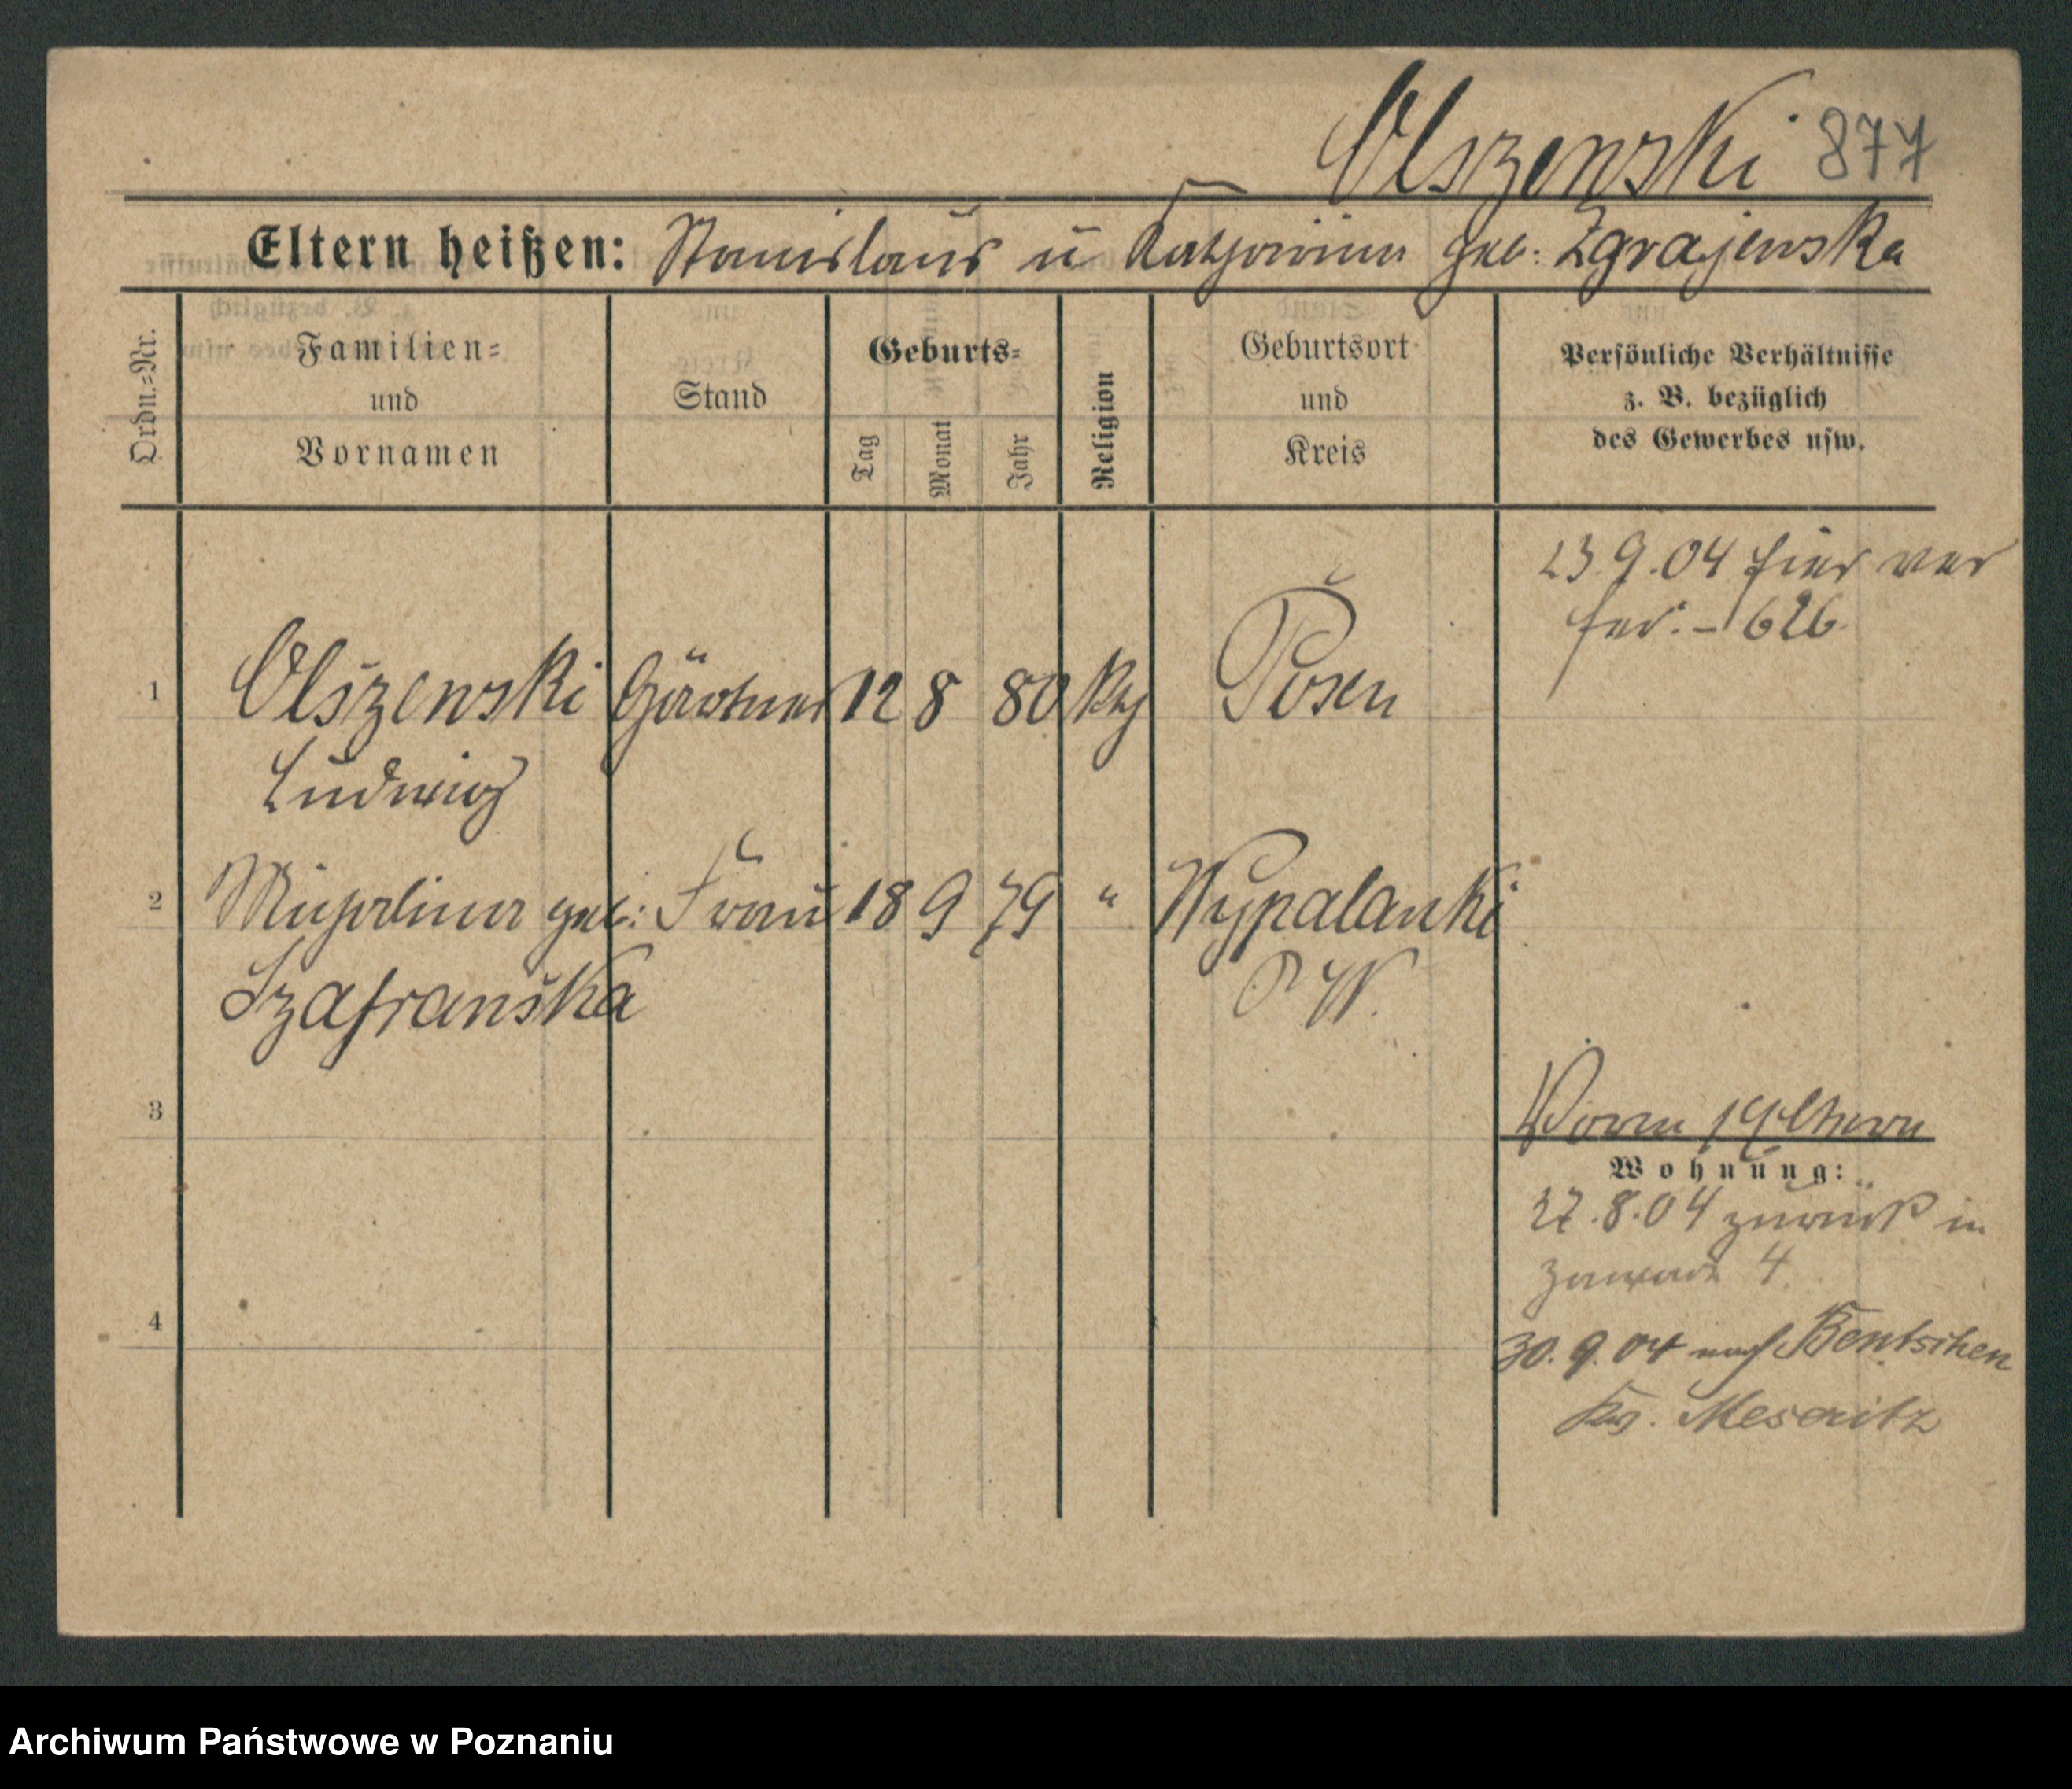 Olszewski 877
Eltern heißen: Stanislaus u Katharina geb: Zgrajewska
Ordn.=Nr.
Familien=
und
Vornamen
Stand
Geburts=
Tag
Monat
Jahr
Religion
Geburtsort
und
Kreis
Persönliche Verhältnisse
z. B. bezüglich
des Gewerbes usw.
23.9.04 hier ver
her. – 626.
1 Olszewski Gärtner 12 8 80 kth Posen
Ludwig
2 Michalina geb: Frau 18 9 79 " Wypalanki
Szafranska P W.
3
4
Wohnung:
27.8.04 zurück in
Zawade 4
30.9.04 nach Bentschen
Krs. Meseritz
Archiwum Państwowe w Poznaniu